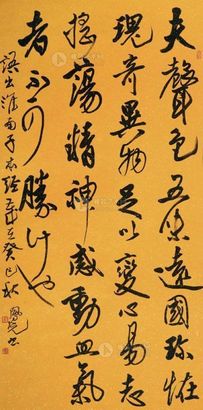 夫聲色五味遠國珍恠
瑰奇異物足以變心易志
搖蕩精神感動血氣
者不可勝計也
語出淮南子 癸巳秋